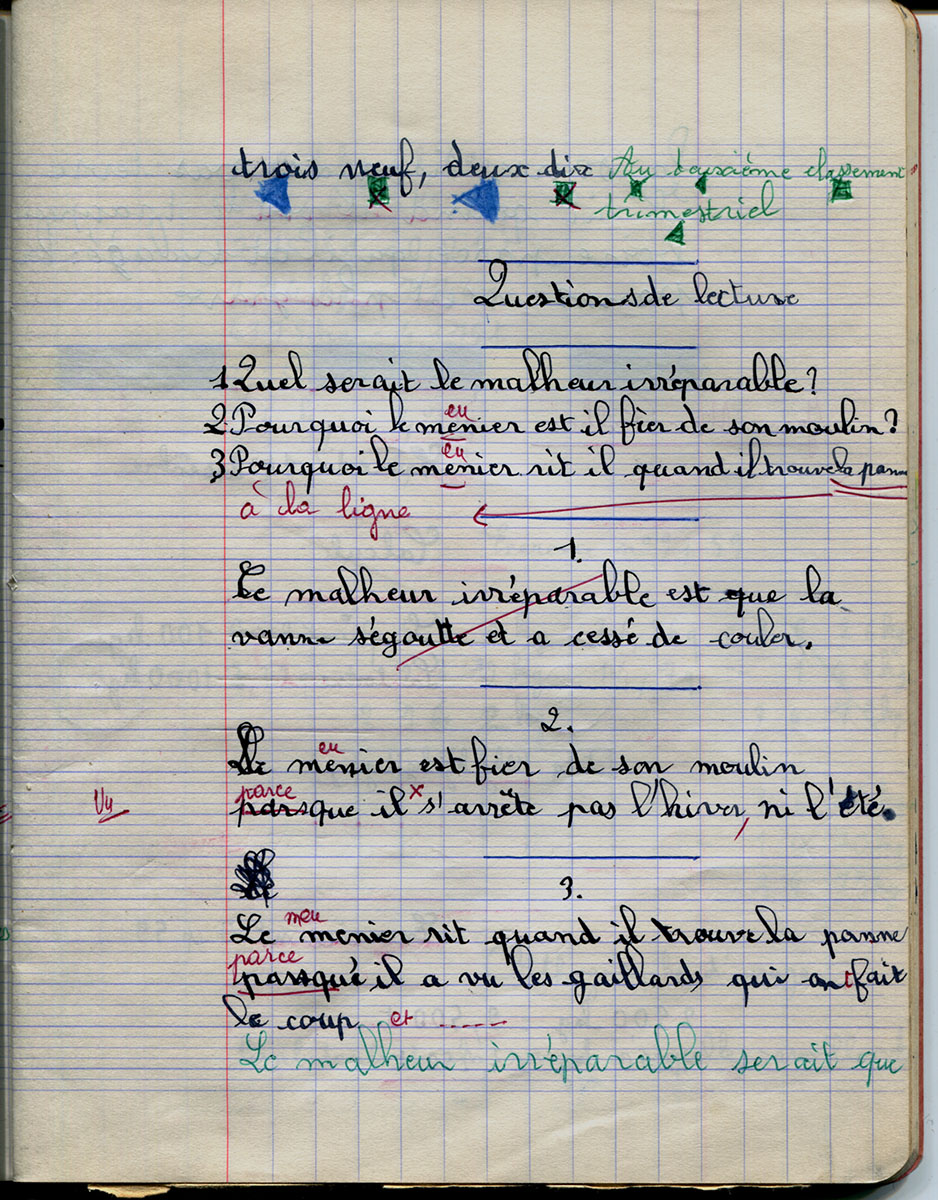 trois neuf, deux dix Au deuxième classement
trimestriel
Questions de lecture
1 Quel serait le malheur irréparable?
eu
2 Pourquoi le menier est il fier de son moulin?
eu
3 Pourquoi le menier rit il quand il trouve la panne
à la ligne
1.
Le malheur irréparable est que la
vanne ségoutte et a cessé de couler.
2.
eu
Le menier est fier de son moulin
parce
parsque il s'arrête pas l'hiver, ni l'été.
Vu
3.
meu
Le menier rit quand il trouve la panne
parce
parsqué il a vu les gaillards qui ont fait
le coup et
Le malheur irréparable serait que